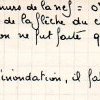 murs de la nef = 0
de la flèche du c
on ne fut faite q
inondation, il fa